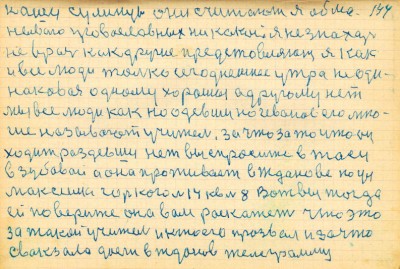 нашей сулимцы они считают я обма- 144
него уговославных никакой я не знахар
не врач как другие предстовляют я как
и все люди только сегоднешнее утра неоди-
наковая одному хорошы а другому нет
мы все люди как но одевши но ево мно-
гие называют учител. за что зато что он
ходит раздевши нет вы спросите в таси
в зубавай а она проживает в жданове по ул
максема горкого м 14 кв м 8 Вотвы тогда
ей поверите она вам раскажет что это
за такой учител и ктоего прозвал и зачто
с вакзала доети в жданов телеграмму